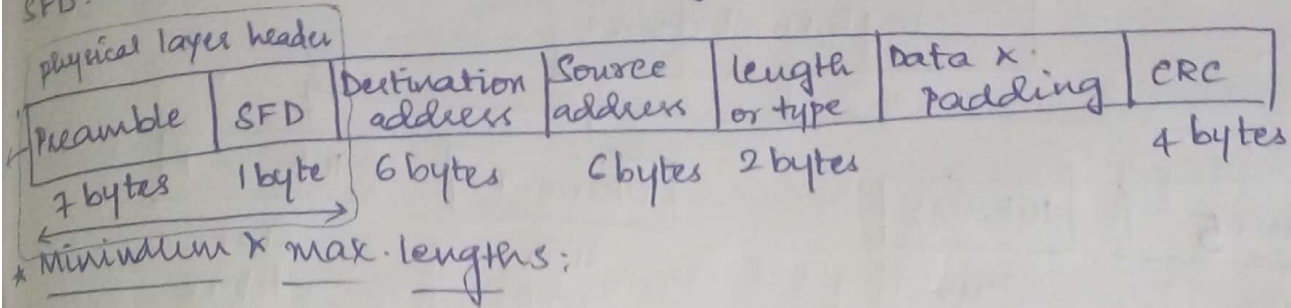 SFD.
physical layer header
Preamble SFD Destination address Source address length or type Data & padding CRC
7 bytes 1 byte 6 bytes 6 bytes 2 bytes 4 bytes
* Minimum & max. lengths: